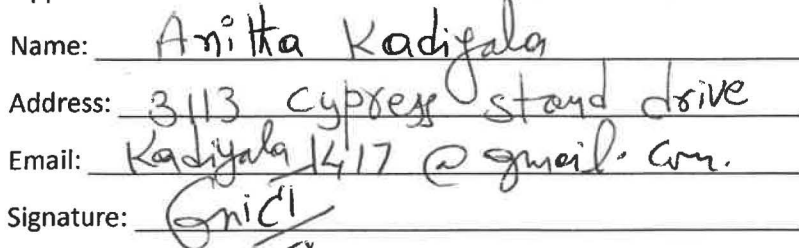 Name: Anitha Kadiyala
Address: 3113 Cypress stand drive
Email: Kadiyala1417@gmail.com.
Signature: